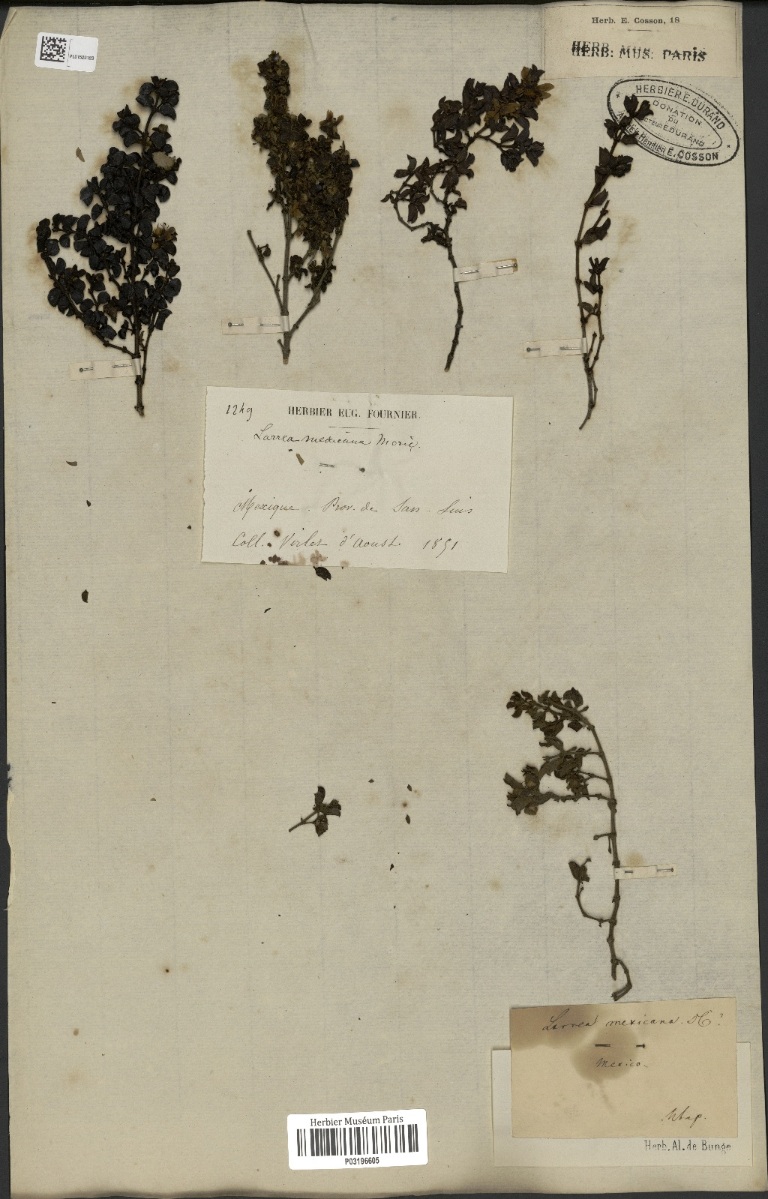 Herb. E. Cosson, 18
HERB. MUS. PARIS
HERBIER E. DURAND
DONATION
DU
E. DURAND
Herbier E. COSSON
1249 HERBIER EUG. FOURNIER.
Larrea mexicana Moric.
Mexique. Prov. de San. Luis
Coll. Virlet d'Aoust. 1851
Larrea mexicana.
Mexico.
Herb. Al. de Bunge
Herbier Muséum Paris
P03196605